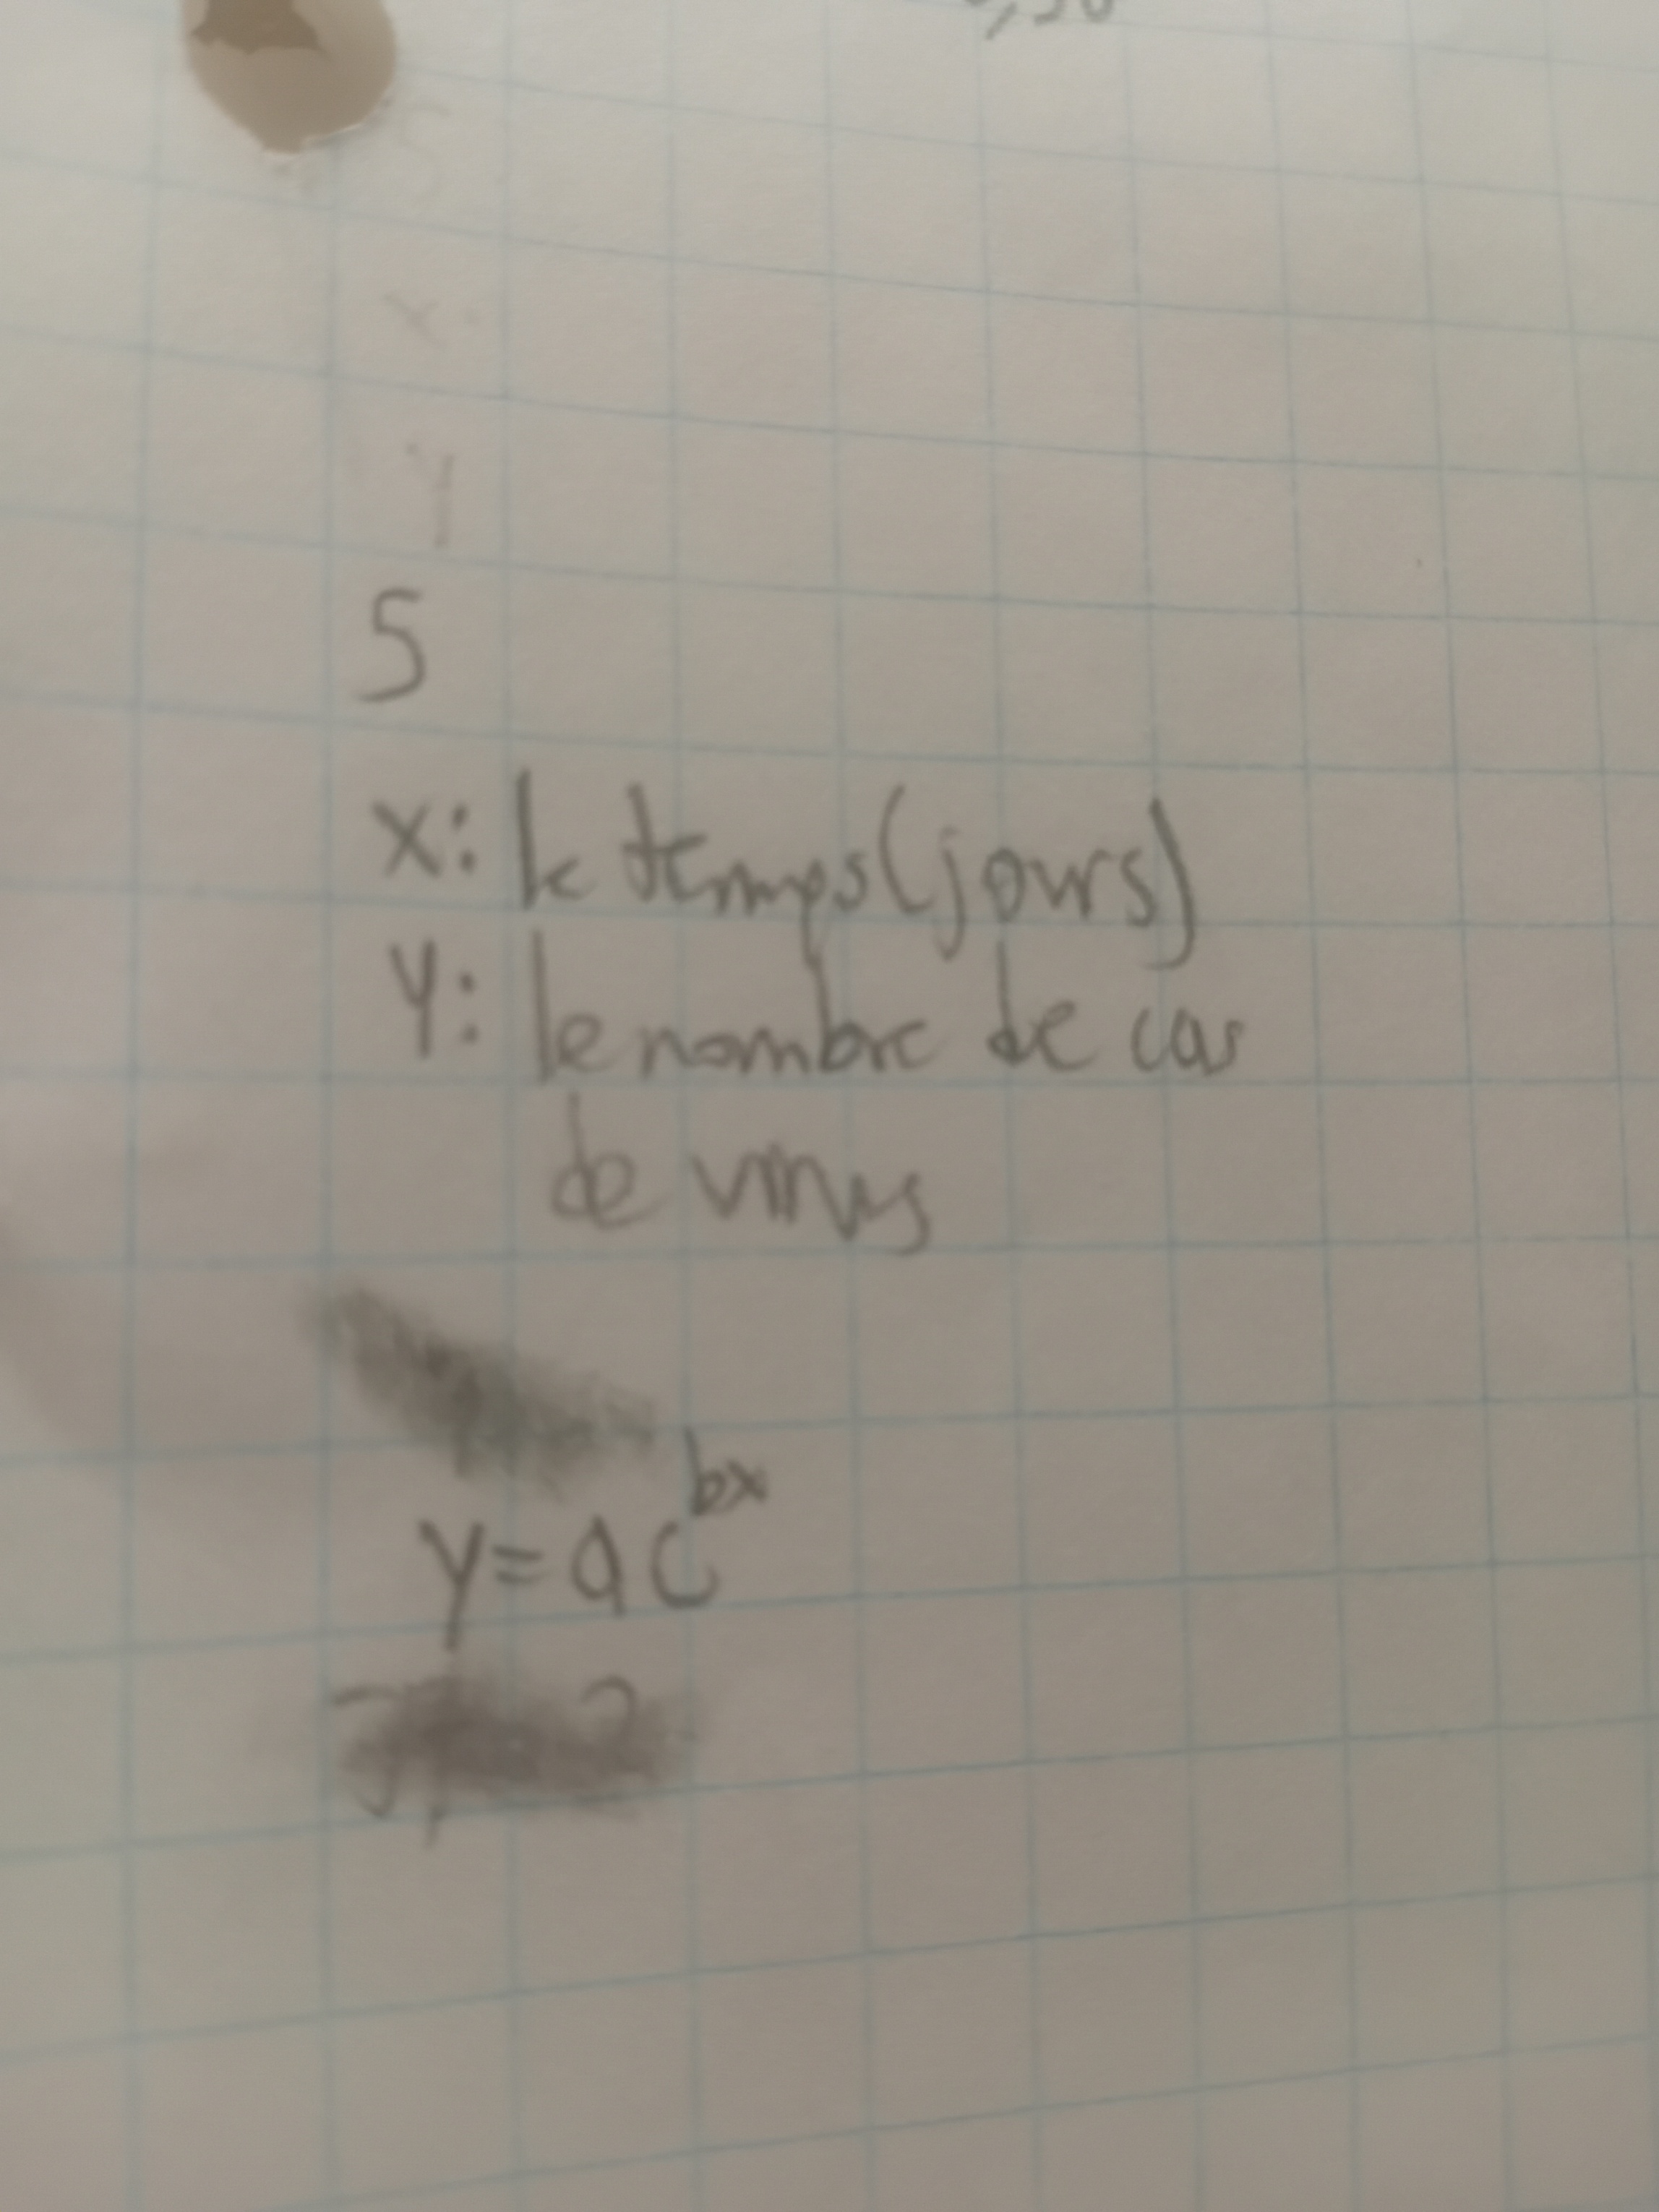 5
x: le temps (jours)
y: le nombre de cas
de virus
y = ac^bx